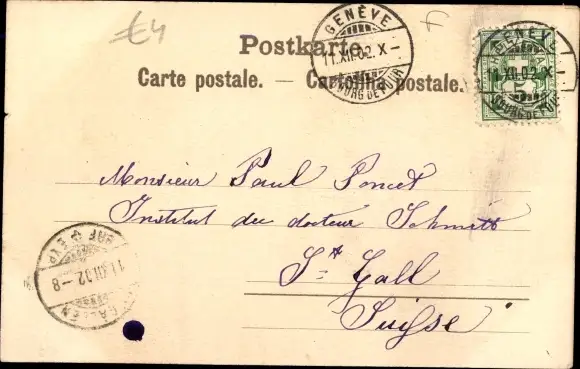 €4
GENÈVE
11.XII.02.X–
BOURG DE FOUR
GENÈVE
11.XII.02.X–
BOURG DE FOUR
Postkarte.
Carte postale. — Cartolina postale.
Monsieur Paul Poncet
Institut du docteur Schmidt
St Gall
Suisse
11.XII.02–8
GALLEN